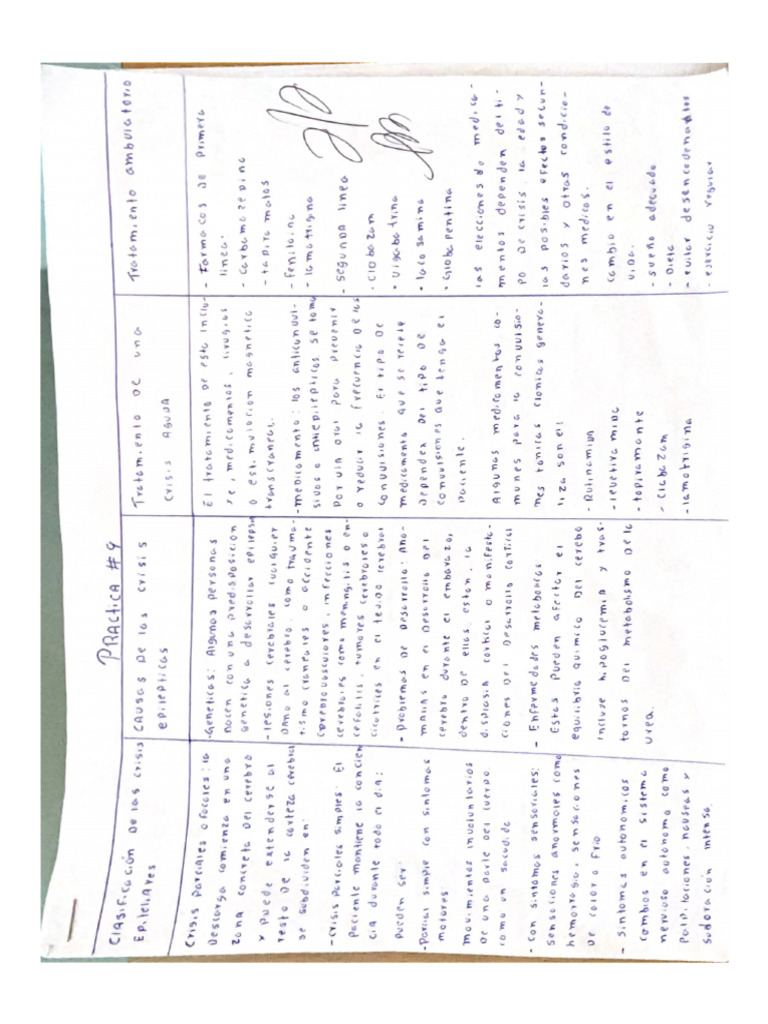 PRACTICA #9
Clasificación De las crisis
Epileliares
Crisis parciales o focales: la
Descarga comienza en una
zona concreta Del cerebro
y puede extenderse al
resto De la corteza cerebral
se subdividen en:
-Crisis parciales simples: El
paciente mantiene la concien
cia durante todo el dia:
pueden ser:
-Parcial simple con sintomas
motores:
movimientos involuntarios
De una parte Del cuerpo
como un sacudida
- Con sintomas sensoriales:
sensaciones anormales como
hemorragia, sensaciones
De calor o frio
- Sintomas autonomicos
cambios en el sistema
nervioso autonomo como
palpitaciones, nauseas y
sudoración intensa.
Causas De las crisis
epilepticas
-Geneticas: Algunas personas
nacen con una predisposicion
genetica a desarrollar epilepsia
-lesiones cerebrales cualquier
Daño al cerebro, como trauma-
tismo craneales o accidente
cerebrovasculares, infecciones
cerebrales como meningitis o en-
cefalitis, tumores cerebrales o
cicatrices en el tejido cerebral
- Problemas De Desarrollo: Ano-
malias en el Desarrollo Del
cerebro durante el embarazo,
dentro De ellas estan, la
displasia cortical o manifesta-
ciones Del Desarrollo cortical
- Enfermedades metabolicas
Estas pueden afectar el
equilibrio quimico Del cerebro
incluye hipoglucemia y tras-
tornos Del metabolismo De la
urea.
Tratamiento De una
crisis AguDa
El tratamiento De esta inclu-
ye, medicamentos, cirugias
o estimulacion magnetica
transcraneas.
-medicamento: los anticonvul-
sivos o antiepilepticos se toma
por via oral para prevenir
o reducir la frecuencia De las
convulsiones. El tipo De
medicamento que se recete
Dependera Del tipo De
convulsiones que tenga el
paciente.
Algunas medicamentos co-
munes para la convulsio-
nes tonicas clonicas genera-
liza son el:
- Rufinamida
- levetiramida
- topiramante
- clabazam
- lamotrigina
Tratamiento ambulatorio
- Farmacos De Primera
linea:
- Carbamazepina
- tapiramatos
- Fenitoina
- lamatrigina
- Segunda linea
• Clobazam
• Vigabatrina
• lacosamina
• Gabapentina
las elecciones de medica-
mentos dependen del ti-
po De crisis, la edad y
las posibles efectos secun-
darios y otras condicio-
nes medicas.
cambio en el estilo de
vida.
- sueño adecuado
- Dieta
- evitar desencadenantes
- ejercicio regular